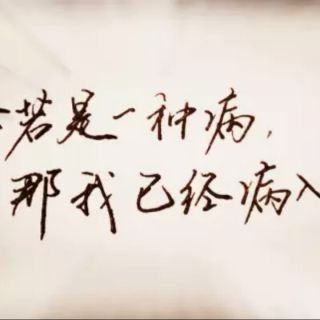 若是一种病，
那我已经病入